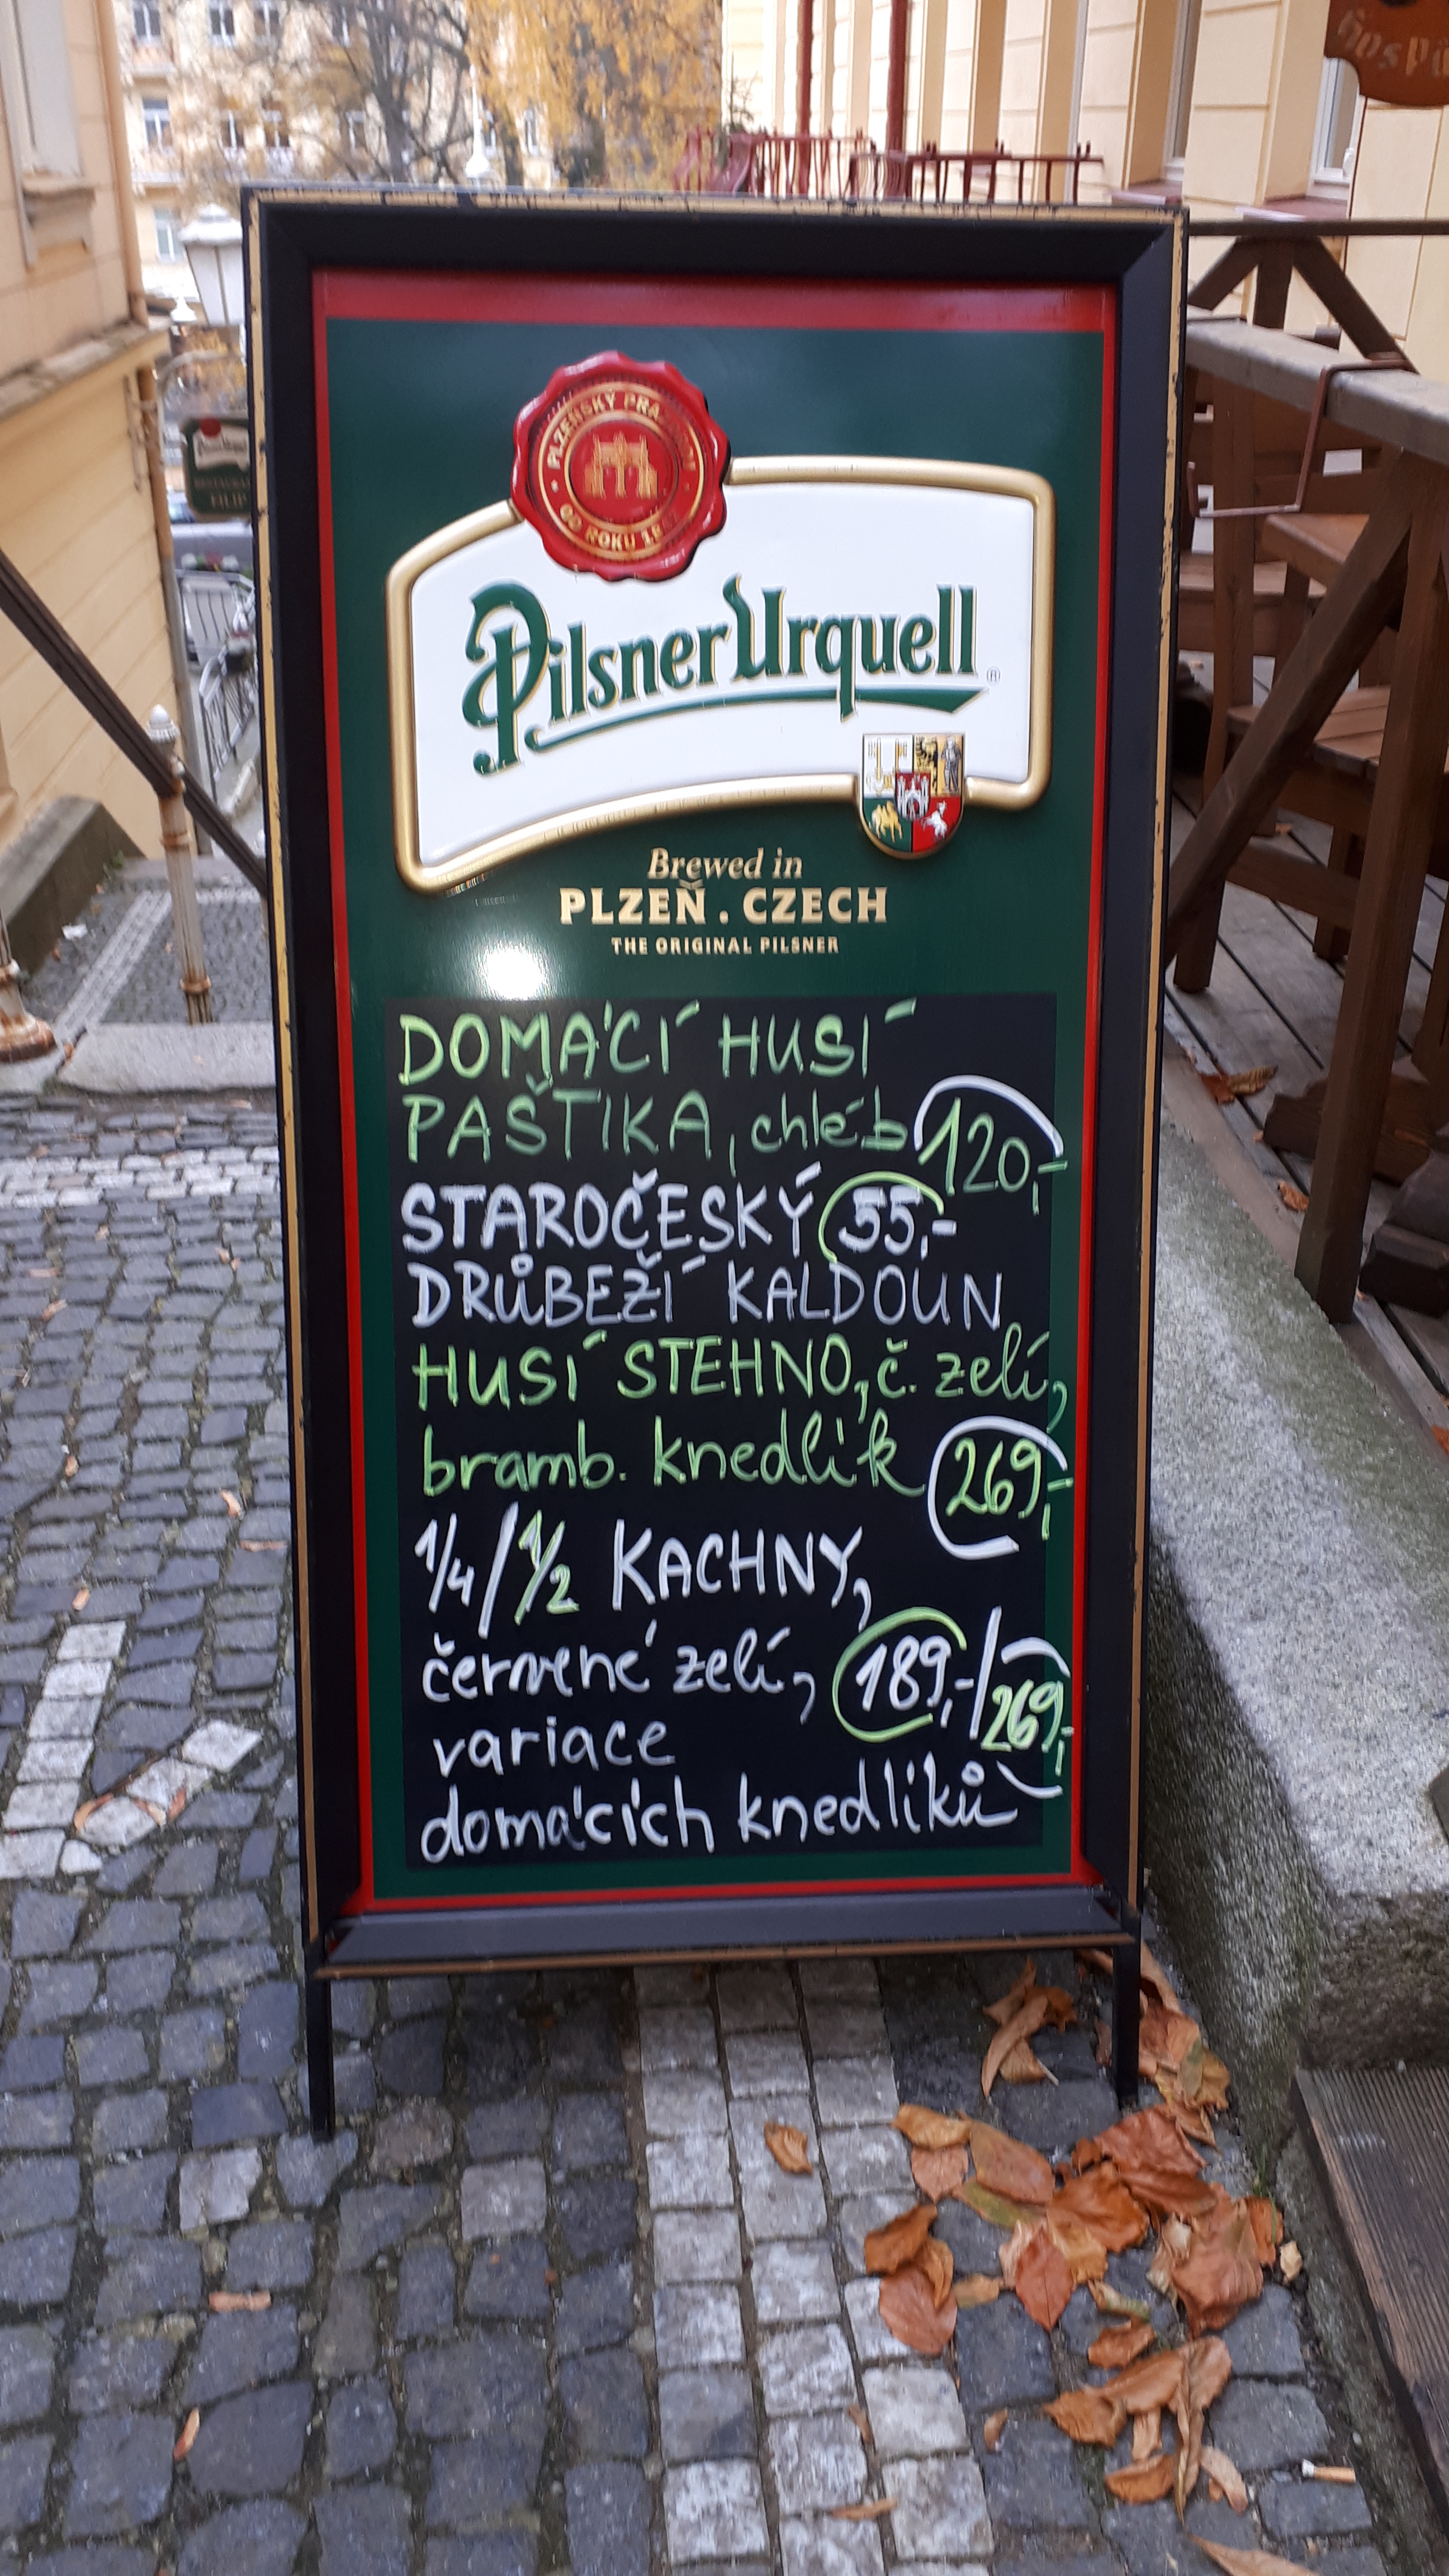 PLZEŇSKÝ PRA
OD ROKU 18
Pilsner Urquell ®
Brewed in
PLZEŇ . CZECH
THE ORIGINAL PILSNER
DOMÁCÍ HUSÍ
PAŠTIKA, chléb 120,-
STAROČESKÝ 55,-
DRŮBEŽÍ KALDOUN
HUSÍ STEHNO, č. zelí,
bramb. knedlík 269,-
1/4 / 1/2 KACHNY,
červené zelí, 189,-/269,-
variace
domácích knedlíků